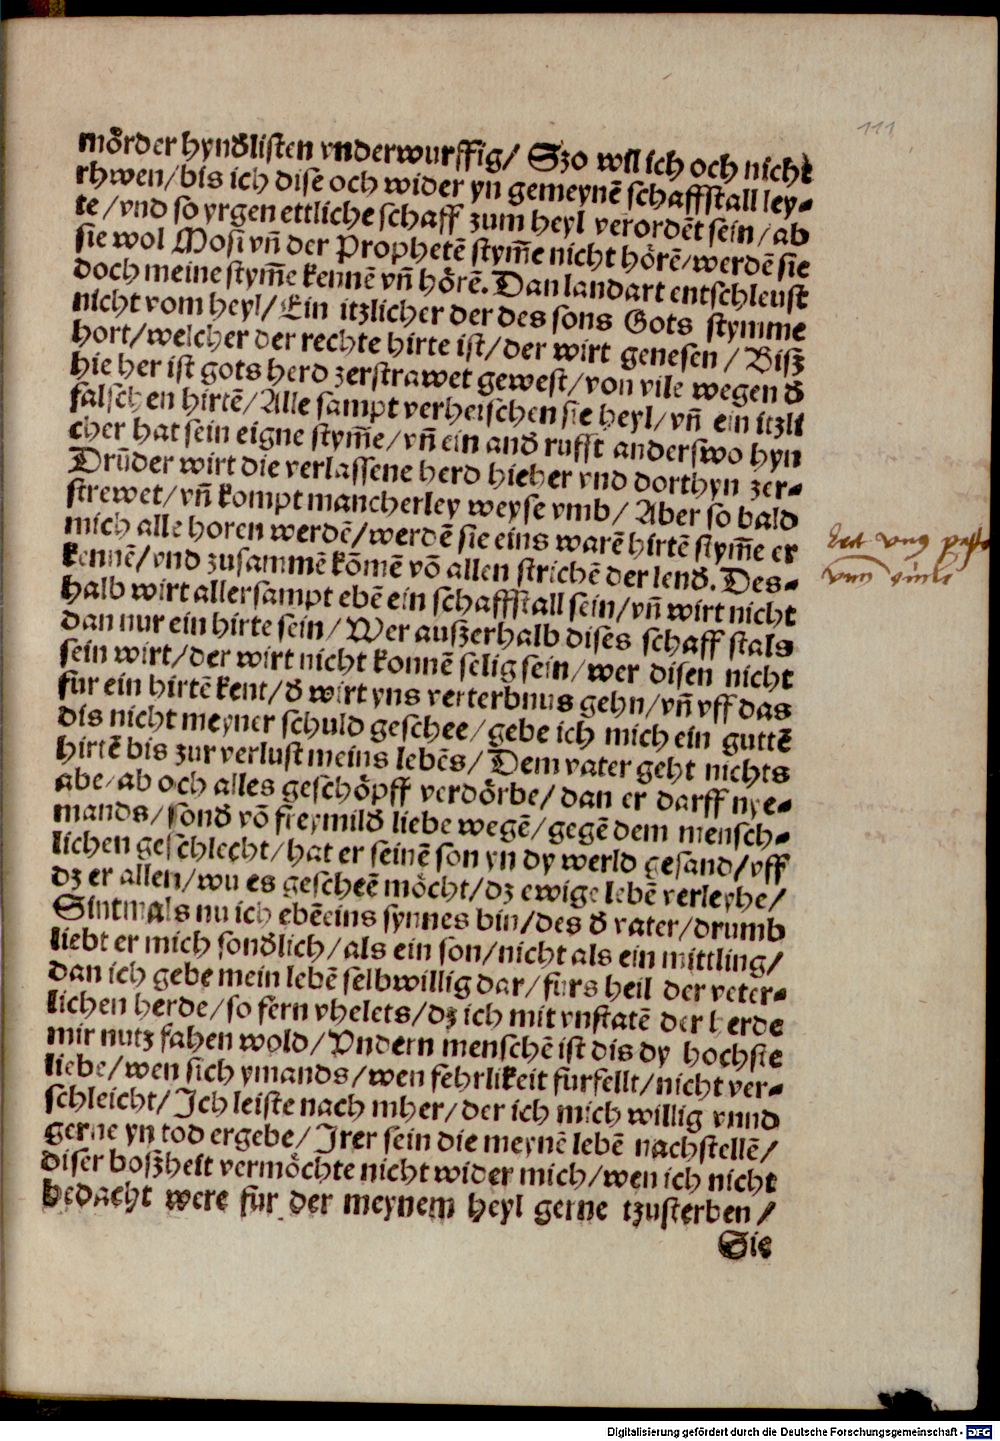 111
mörder hyndlisten vnderwurffig/ Szo wil ich och nicht
rhwen/bis ich dise och wider yn gemeynē schaffstall ley-
te/vnd so yrgen ettliche schaff zum heyl verordēt sein/ab
sie wol Mosi vñ der Prophetē stym̄e nicht hörē/werdē sie
doch meine stym̄e kennē vñ hörē. Dan landart entschleust
nicht vom heyl/Ein itzlicher der des sons Gots stymme
hort/welcher der rechte hirte ist/der wirt genesen/Bisz
hie her ist gots herd zerstrawet gewest/von vile wegen đ
falschen hirtē/Alle sampt verheischen sie heyl/vñ ein itzli
cher hat sein eigne stym̄e/vñ ein anđ rufft anderswo hyn
Drūder wirt die verlassene herd hieher vnd dorthyn zer-
strewet/vñ kompt mancherley weyse vmb/Aber so bald
mich alle horen werdē/werdē sie eins warē hirtē stym̄e er
kennē/vnd zusammē kōmē vō allen strichē der lenđ. Des-
halb wirt allersampt ebē ein schaffstall sein/vñ wirt nicht
dan nur ein hirte sein/Wer auszerhalb dises schaff stals
sein wirt/der wirt nicht konnē selig sein/wer disen nicht
fur ein hirtē kent/đ wirt yns verterbnus gehn/vñ vff das
dis nicht meyner schuld geschee/gebe ich mich ein guttē
hirtē bis zur verlust meins lebēs/Dem vater geht nichts
abe/ab och alles geschöpff verdörbe/dan er darff nye-
mands/sonđ vō freymilđ liebe wegē/gegē dem mensch-
lichen geschlecht/hat er seinē son yn dy werld gesand/vff
dz er allen/wu es gescheē möcht/dz ewige lebē verleyhe/
Sintmals nu ich ebēeins synnes bin/des đ vater/drumb
liebt er mich sonđlich/als ein son/nicht als ein mittling/
dan ich gebe mein lebē selbwillig dar/furs heil der veter-
lichen herde/so fern vhelets/dz ich mit vnstatē der herde
mir nutz fahen wold/Vndern menschē ist dis dy hochste
liebe/wen sich ymands/wen fehrlikeit furfellt/nicht ver-
schleicht/Ich leiste nach mher/der ich mich willig vnnd
gerne yn tod ergebe/Irer sein die meynē lebē nachstellē/
diser boszheit vermöchte nicht wider mich/wen ich nicht
bedacht were fur der meynem heyl gerne tzusterben/
Sie
Digitalisierung gefördert durch die Deutsche Forschungsgemeinschaft - DFG